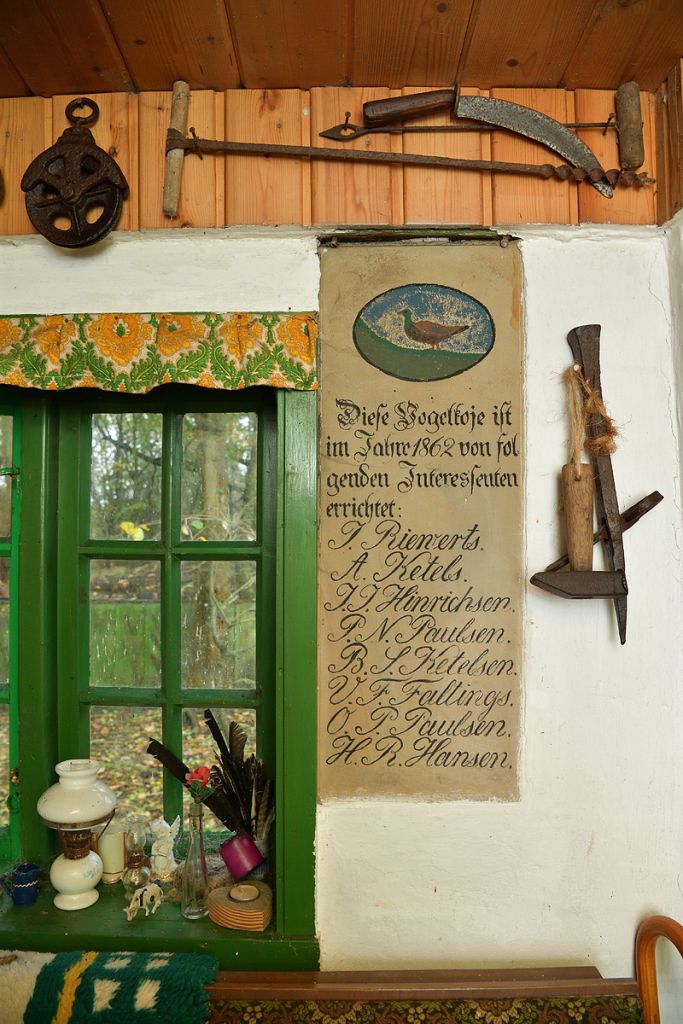 Diese Vogelkoje ist
im Jahre 1862 von fol
genden Interessenten
errichtet:
J. Riewerts.
A. Ketels.
J. J. Hinrichsen.
P. N. Paulsen.
B. S. Ketelsen.
V. F. Faltings.
O. P. Paulsen.
H. R. Hansen.